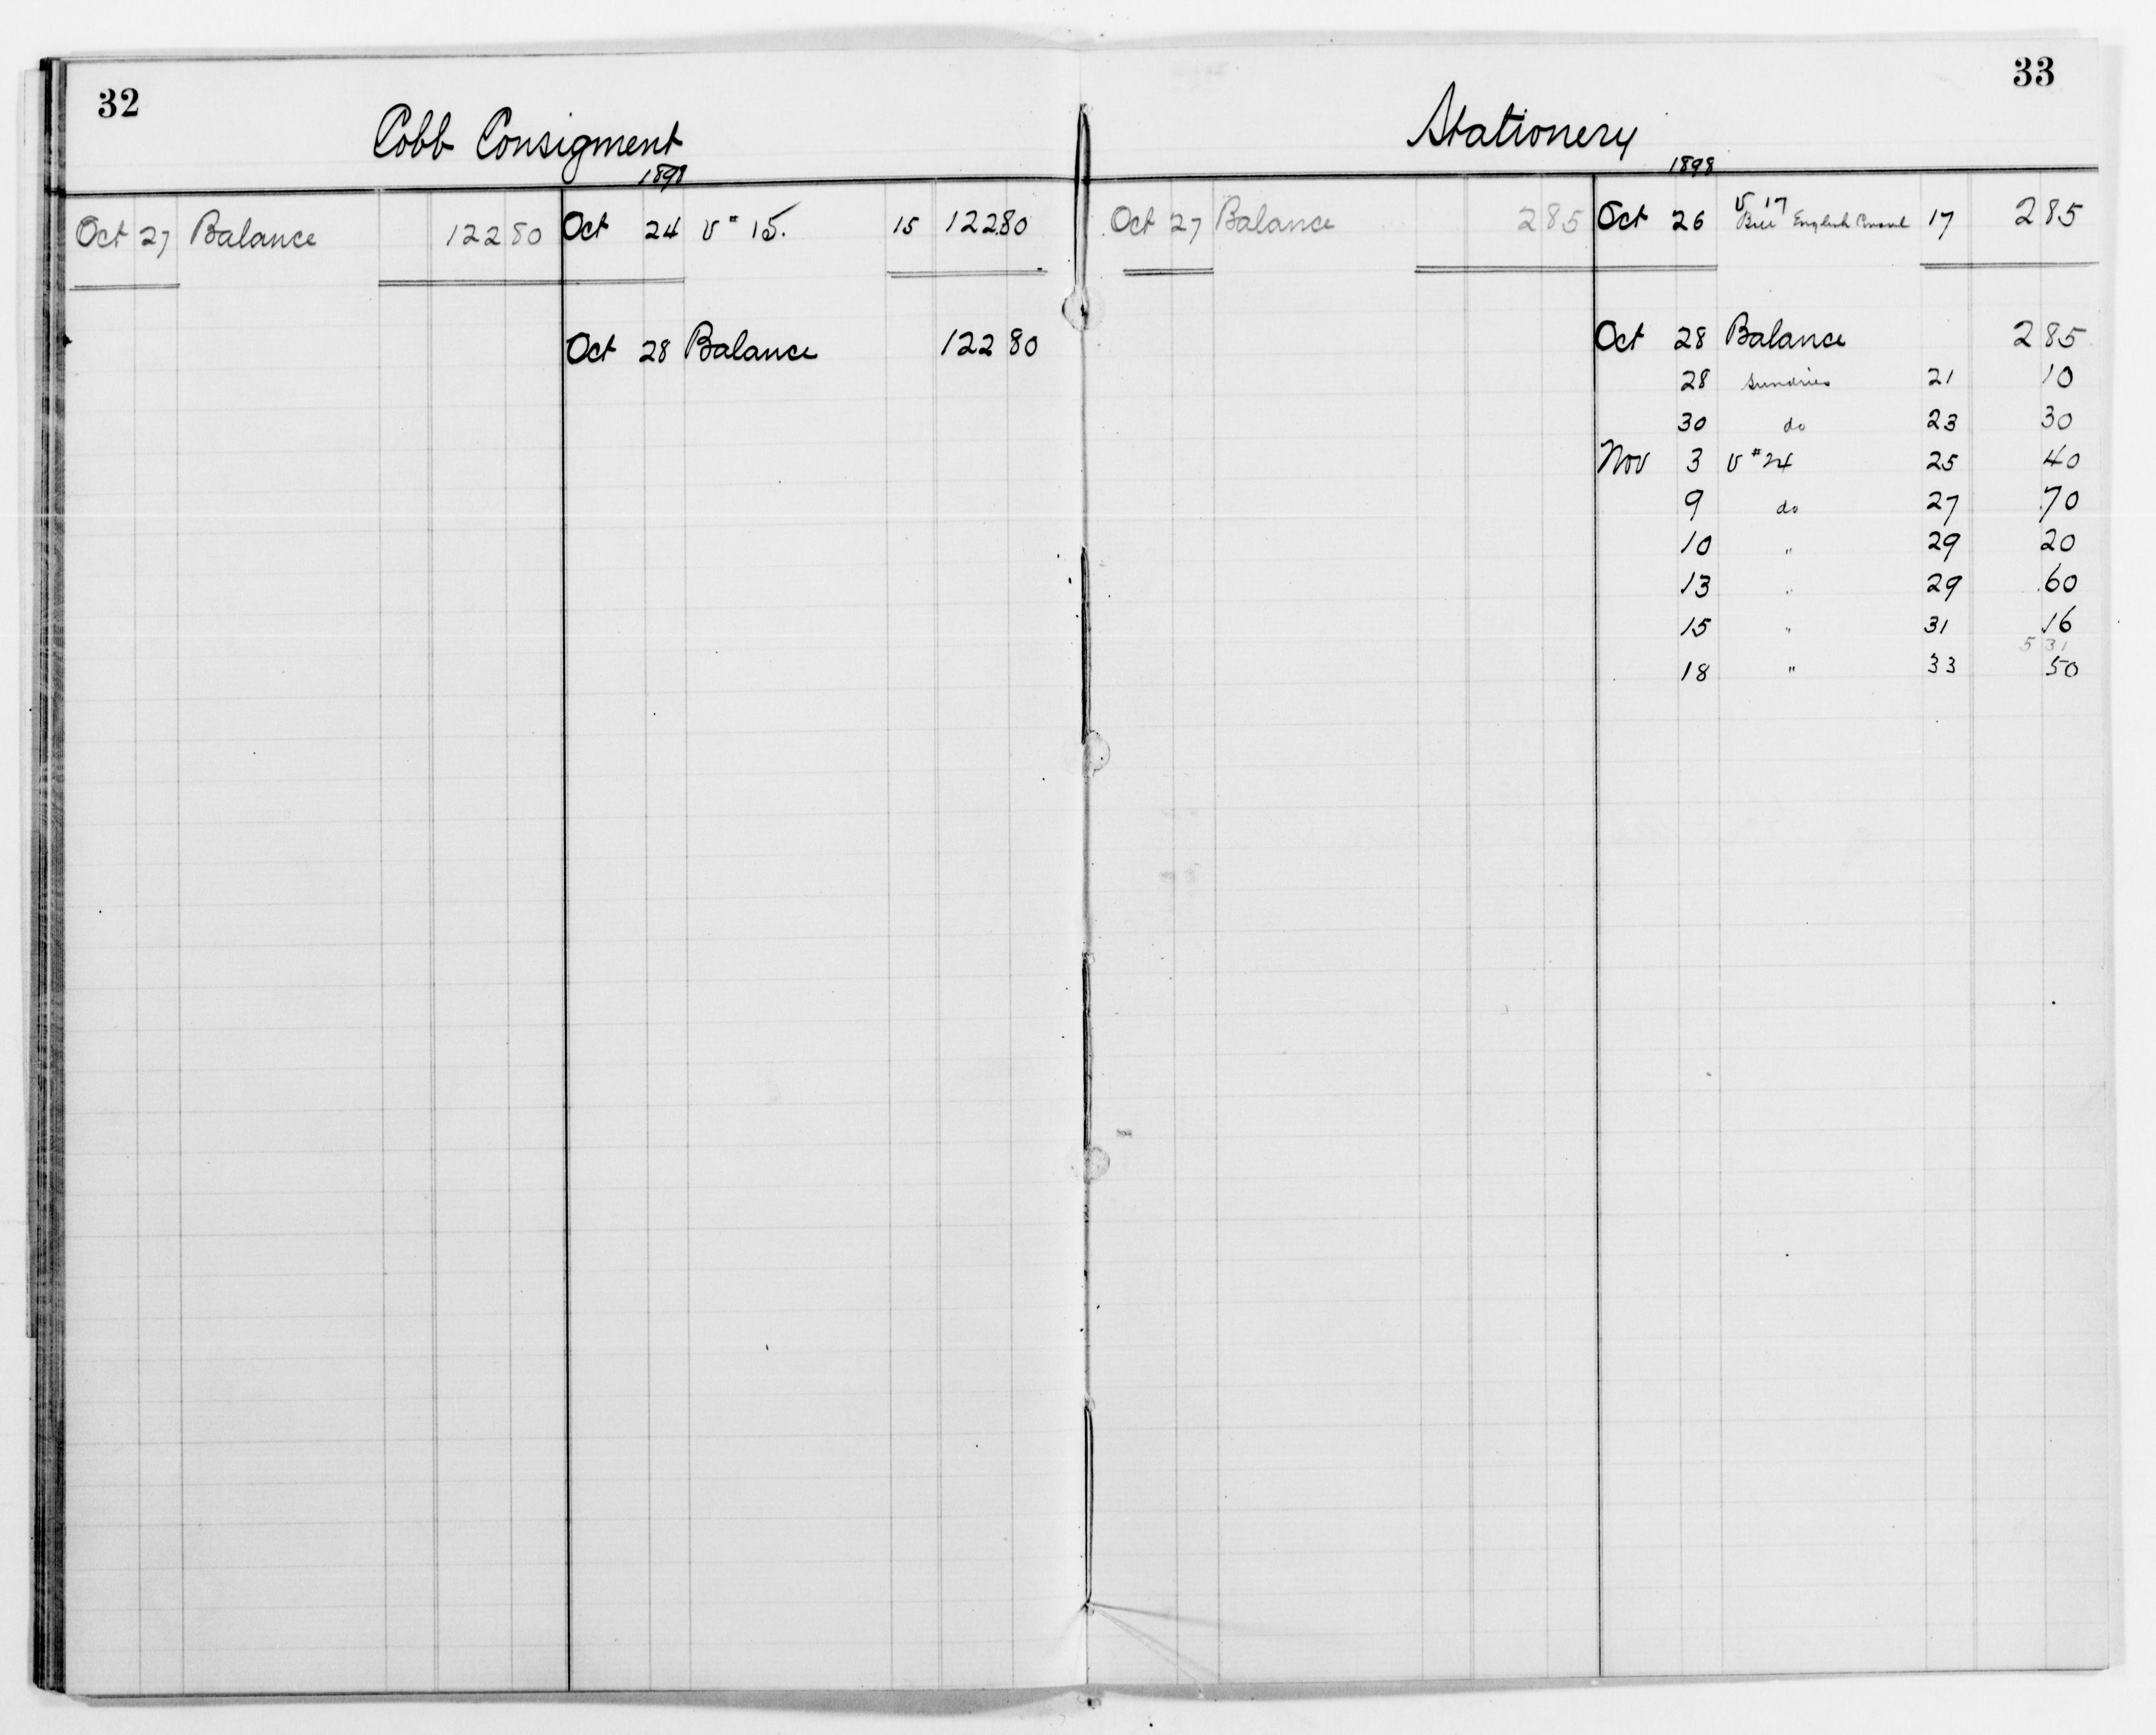 32
Cobb Consigment
1898
Oct 27 Balance 122 80 Oct 24 v # 15. 15 122.80
Oct 28 Balance 122 80
33
Stationery
1898
V 17
Oct 27 Balance 2 85 Oct 26 Bill English Consul 17 2 85
Oct 28 Balance 2 85
28 Sundries 21 10
30 do 23 30
Nov 3 v # 24 25 40
9 do 27 70
10 " 29 20
13 " 29 60
15 " 31 16
5 31
18 " 33 50